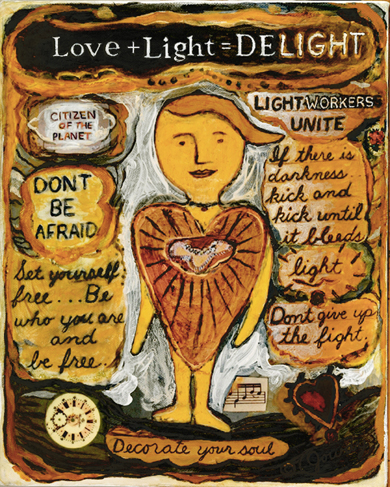 Love + Light = DELIGHT
CITIZEN
OF THE
PLANET
DONT
BE
AFRAID
Set yourself
free...Be
who you are
and
be free..
LIGHTWORKERS
UNITE
If there is
darkness
kick and
kick until
it bleeds
light
Dont give up
the fight
Decorate your soul